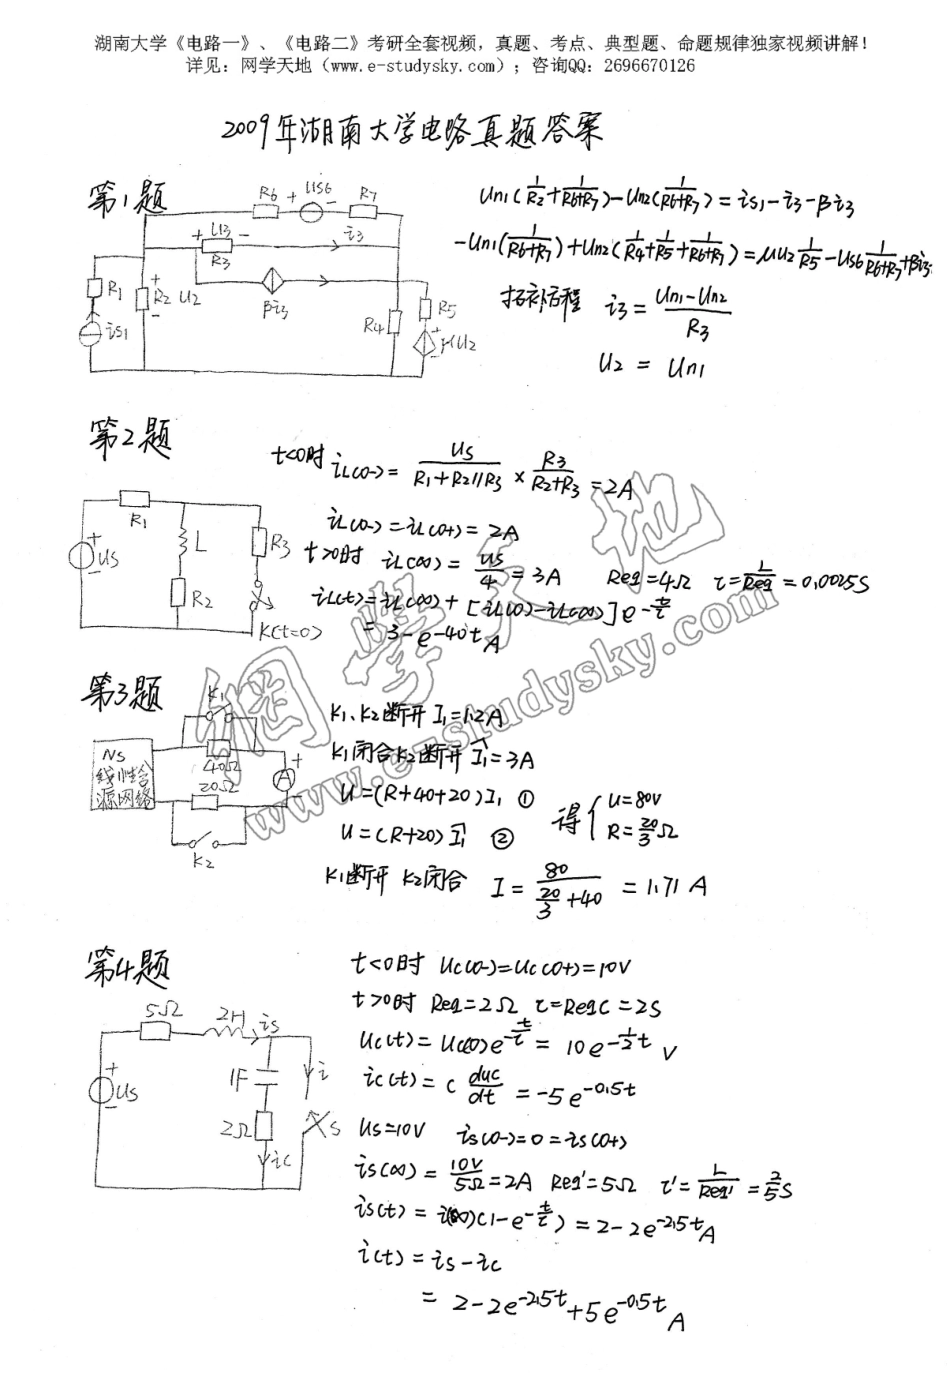 湖南大学《电路一》、《电路二》考研全套视频，真题、考点、典型题、命题规律独家视频讲解！
详见：网学天地（www.e-studysky.com）；咨询QQ：2696670126
2009年湖南大学电路真题答案
第1题
R6 + US6 - R7
+ U3 - i3
R3
R1 + R2 U2 - βi3 R4 R5
iS1 + μU2 -
Un1(1/R2+1/(R6+R7))-Un2(1/(R6+R7))=iS1-i3-βi3
-Un1(1/(R6+R7))+Un2(1/R4+1/R5+1/(R6+R7))=μU2 1/R5-US6 1/(R6+R7)+βi3+i3
拓补方程 i3=(Un1-Un2)/R3
U2=Un1
第2题
R1
+ US - L R3
R2
K(t=0)
t<0时 iL(0-)=US/(R1+R2//R3)×R3/(R2+R3)=2A
iL(0-)=iL(0+)=2A
t>0时 iL(∞)=US/4=3A Req=4Ω τ=L/Req=0.0025S
iL(t)=iL(∞)+[iL(0)-iL(∞)]e-t/τ
=3-e-40t A
第3题
K1
NS
线性含
源网络
40Ω
20Ω
+ A -
K2
K1、K2断开 I1=1.2A
K1闭合K2断开 I1'=3A
U=(R+40+20)I1 ①
U=(R+20)I1' ②
得{U=80V
R=20/3Ω
K1断开 K2闭合 I=80/(20/3+40)=1.71A
第4题
5Ω 2H is
+ US - 1F i
2Ω S
ic
t<0时 Uc(0-)=Uc(0+)=10V
t>0时 Req=2Ω τ=ReqC=2S
Uc(t)=Uc(0)e-t/τ=10e-1/2t V
ic(t)=C duc/dt=-5e-0.5t
US=10V is(0-)=0=is(0+)
is(∞)=10V/5Ω=2A Req'=5Ω τ'=L/Req'=2/5S
is(t)=i(∞)(1-e-t/τ)=2-2e-2.5t A
i(t)=is-ic
=2-2e-2.5t+5e-0.5t A
網學天地
www.e-studysky.com